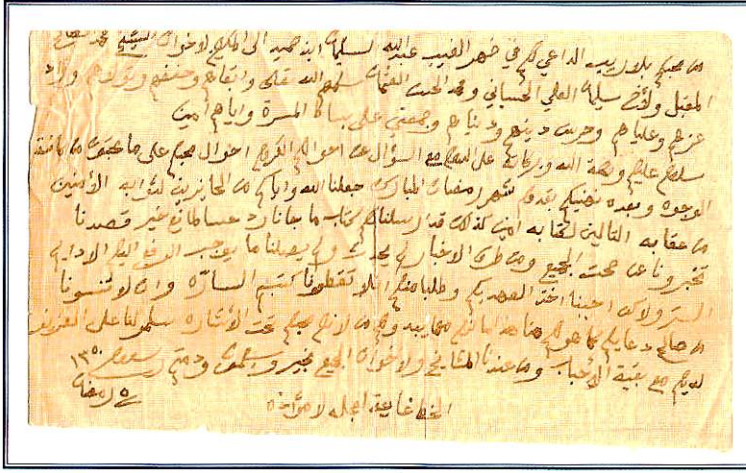 من محبكم بلا ريب الداعي لكم في ظهر الغيب عبدالله السليمان ابن حميد الى المكرمين الاخوان الشيخ محمد الصالح
المقبل والأخ سليمان العلي الحسياني ومحمد العثمان سلمهم الله تعالى وابقاهم وحفظهم وتولاهم وزاد
عزهم وعلياهم وحرس دينهم ودنياهم وجمعني على بساط المسرة واياهم امين
سلام عليكم ورحمة الله وبركاته على الدوام مع السؤال عن احوالكم الكرام احوال محبكم على ما تحبون من كافة
الوجوه وبعده نهنيكم بقدوم شهر رمضان المبارك جعلنا الله واياكم من الحايزين لثوابه الآمنين
من عقابه التالين لكتابه امين كذلك قد ارسلنا لكم كتاب ما جانا رد عسا مانع خير قصدنا
تخبرونا عن صحت الجميع ومن طرف الاخبار لم يحدث ولم يصلنا ما يوجب الرفع اليكم الا دايم
الستر ولاكن احببنا اخذ العهد بكم وطلبا منكم ان لا تقطعونا كتبكم السارة وان لا تنسونا
من صالح دعايكم كما هو لكم منا هذا ما لزم مما يبدو لكم من لازم محبكم تحت الأشارة سلموا لنا على العزيز
لديكم مع بقية الأحباب ومن عندنا المشايخ والاخوان الجميع بخير ويسلمون ودمتم سعودي ١٣٥٠
٤ رمضان
الخط غايته عجله لا مؤاخذه